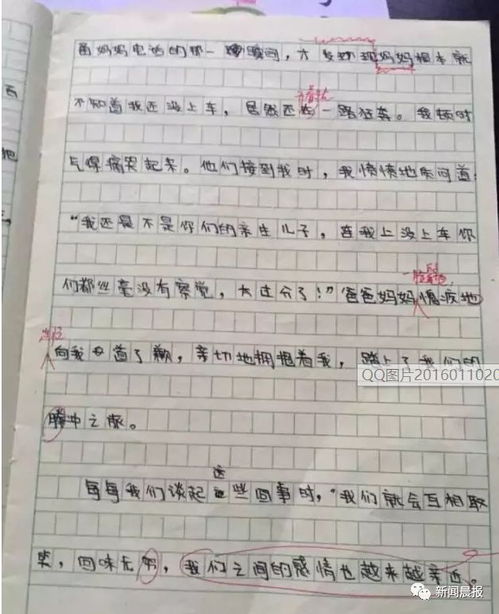 妈妈电话的那一瞬间，才发现妈妈根本就
不知道我还没上车，居然还一路狂奔。我顿时
气得痛哭起来。他们接到我时，我愤愤地质问道：
“我还是不是你们的亲生儿子，连我上没上车你
们都丝毫没有察觉，太过分了！”爸爸妈妈愧疚地
向我道了歉，亲切地拥抱着我，踏上了我们的
QQ图片2016011020
腾冲之旅。
这
每每我们谈起些回事时，“我们就会互相取
笑，回味无穷，我们之间的感情也越来越亲近。
新闻晨报